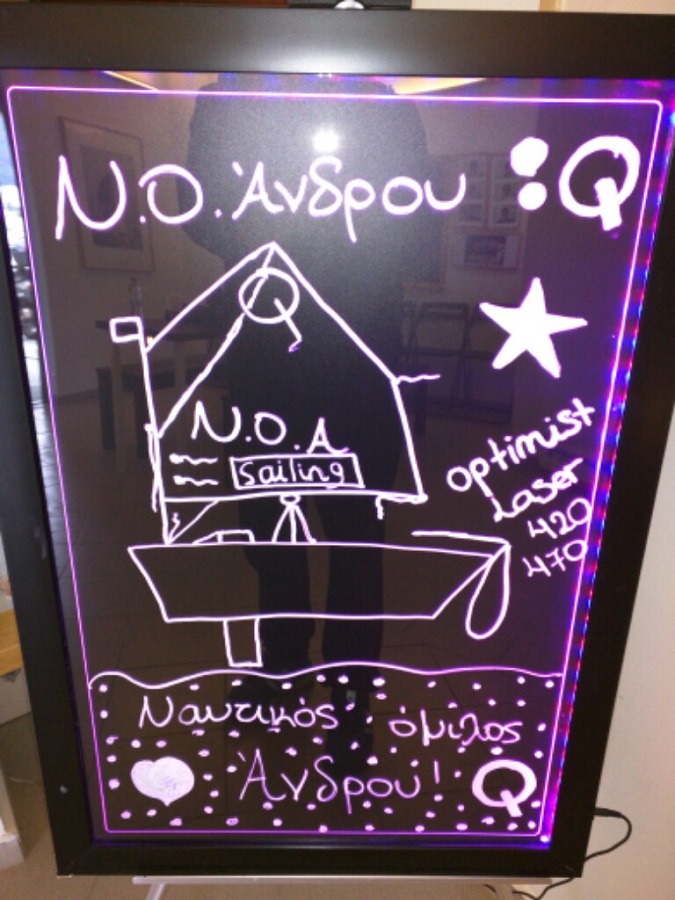 Ν.Ο. Άνδρου :Q
Q
N.O.A
sailing
optimist
Laser
420
470
Ναυτικός όμιλος
Άνδρου! Q